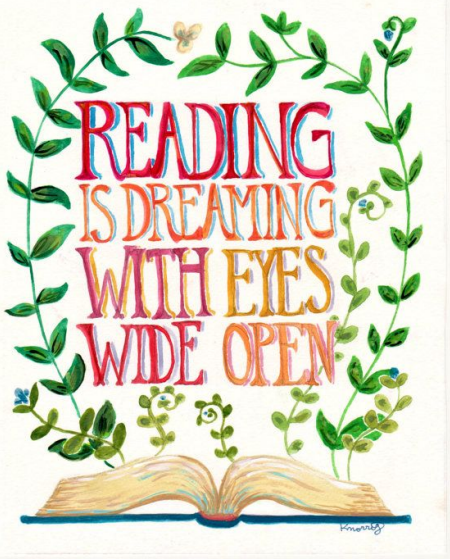 READING
IS DREAMING
WITH EYES
WIDE OPEN